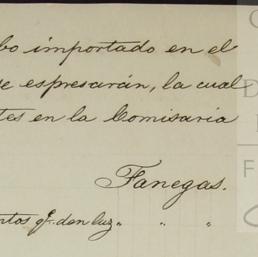 bo importado en el
se espresarán, la cual
tes en la Comisaria
Fanegas.
ntos qe. dan luz " " "